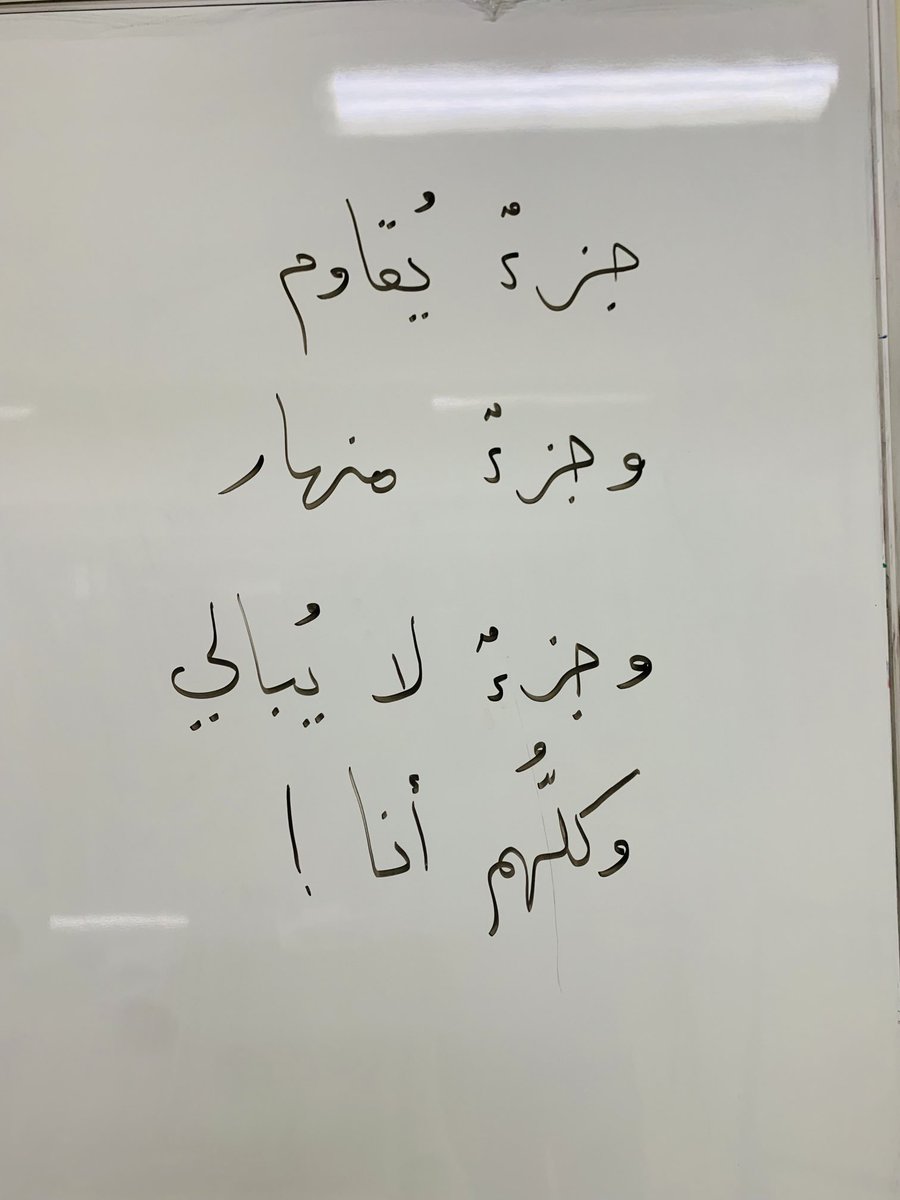 جزءٌ يُقاوم
وجزءٌ منهار
وجزءٌ لا يُبالي
وكلُّهم أنا !